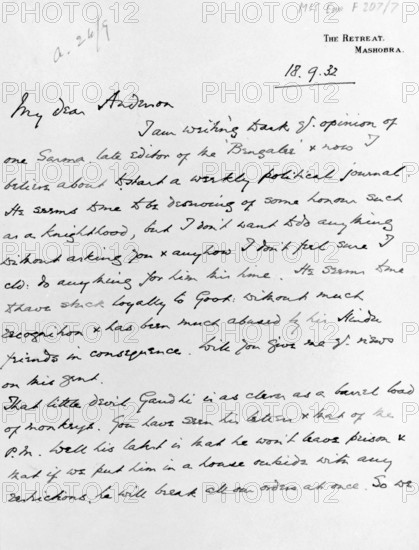 MSS Eur F 207/7
a. 24/9
THE RETREAT.
MASHOBRA.
18.9.32
My dear Anderson
I am writing to ask yr. opinion of
one Sarma, late Editor of the 'Bengalee' & now I
believe about to start a weekly political journal.
He seems to me to be deserving of some honour such
as a knighthood, but I don't want to do anything
without asking you & anyhow I don't feel sure I
cld: do anything for him this time. He seems to me
to have stuck loyally to Govt: without much
recognition & has been much abused by his Hindu
friends in consequence. Will you give me yr views
on this gent.
That little devil Gandhi is as clever as a barrel load
of monkeys. You have seen his letters & that of the
P.M. Well his latest is that he won't leave prison &
that if we put him in a house outside with any
restrictions, he will break all our orders at once. So we
PHOTO12